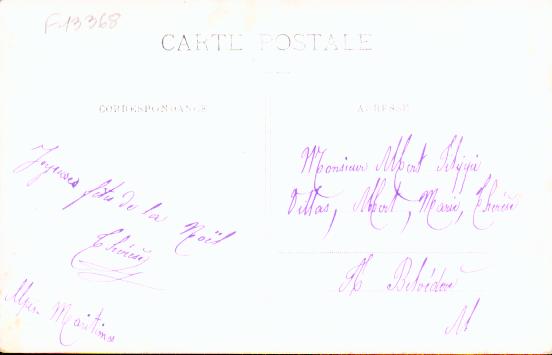 F-13368
CARTE POSTALE
CORRESPONDANCE
ADRESSE
Joyeuses fêtes de la Noël
Thérèse
Alpes-Maritimes
Monsieur Albert
Villas, Albert, Marie, Thérèse
A Belvédère